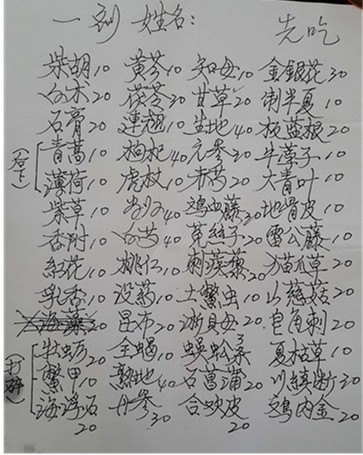 一剂 姓名： 先吃
柴胡10 黄芩10 知母10 金銀花30
白术20 茯苓30 甘草20 制半夏10
石膏20 連翘10 生地40 板蓝根20
(后下) 青蒿10 枸杞40 元参20 牛蒡子10
薄荷10 虎杖20 赤芍20 大青叶10
紫草10 当归20 鸡血藤30 地骨皮10
香附10 白芍40 菟絲子20 雷公藤10
紅花10 桃仁10 刺蒺藜20 猫爪草20
乳香10 没药10 土鳖虫10 山慈菇20
海藻20 昆布20 浙貝母20 皂角刺20
(打碎) 牡蛎20 全蝎10 蜈蚣3条 夏枯草10
鳖甲10 熟地40 石菖蒲20 川續断30
海浮石20 丹參20 合欢皮20 鸡内金20